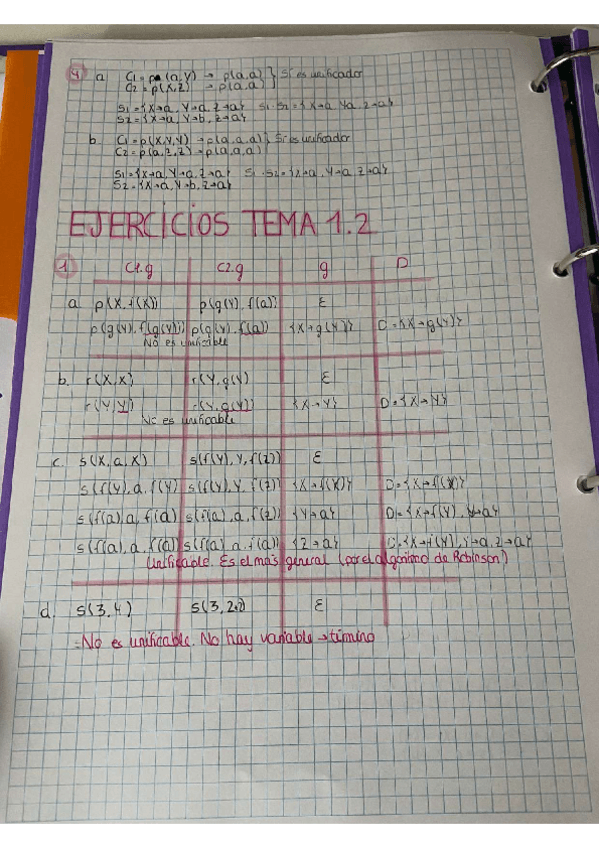 4) a C1 = p(a,Y) → p(a,a) } Sí es unificador
C2 = p(X,Z) → p(a,a)
S1 = {X→a, Y→a, Z→a} S1·S2 = {X→a, Y→a, Z→a}
S2 = {X→a, Y→b, Z→a}
b. C1 = p(X,Y,Y) → p(a,a,a) } Sí es unificador
C2 = p(a,Z,Z) → p(a,a,a)
S1 = {X→a, Y→a, Z→a} S1·S2 = {Z→a, Y→a, Z→a}
S2 = {X→a, Y→b, Z→a}
EJERCÍCIOS TEMA 1.2
1) C1.g C2.g g D
a. p(X, f(X)) p(g(Y), f(a)) ε
p(g(Y), f(g(Y))) p(g(Y), f(a)) {X→g(Y)} D = {X→g(Y)}
No es unificable
b. r(X,X) r(Y,g(Y)) ε
r(Y,Y) r(Y,g(Y)) {X→Y} D = {X→Y}
No es unificable
c. s(X,a,X) s(f(Y), Y, f(Z)) ε
s(f(Y), a, f(Y)) s(f(Y), Y, f(Z)) {X→f(X)} D = {X→f(Y)}
s(f(a), a, f(a)) s(f(a), a, f(Z)) {Y→a} D = {X→f(Y), Y→a}
s(f(a), a, f(a)) s(f(a), a, f(a)) {Z→a} D = {X→f(Y), Y→a, Z→a}
Unificable. Es el más general (por el algoritmo de Robinson)
d. s(3,4) s(3,2+2) ε
No es unificable. No hay variable → término